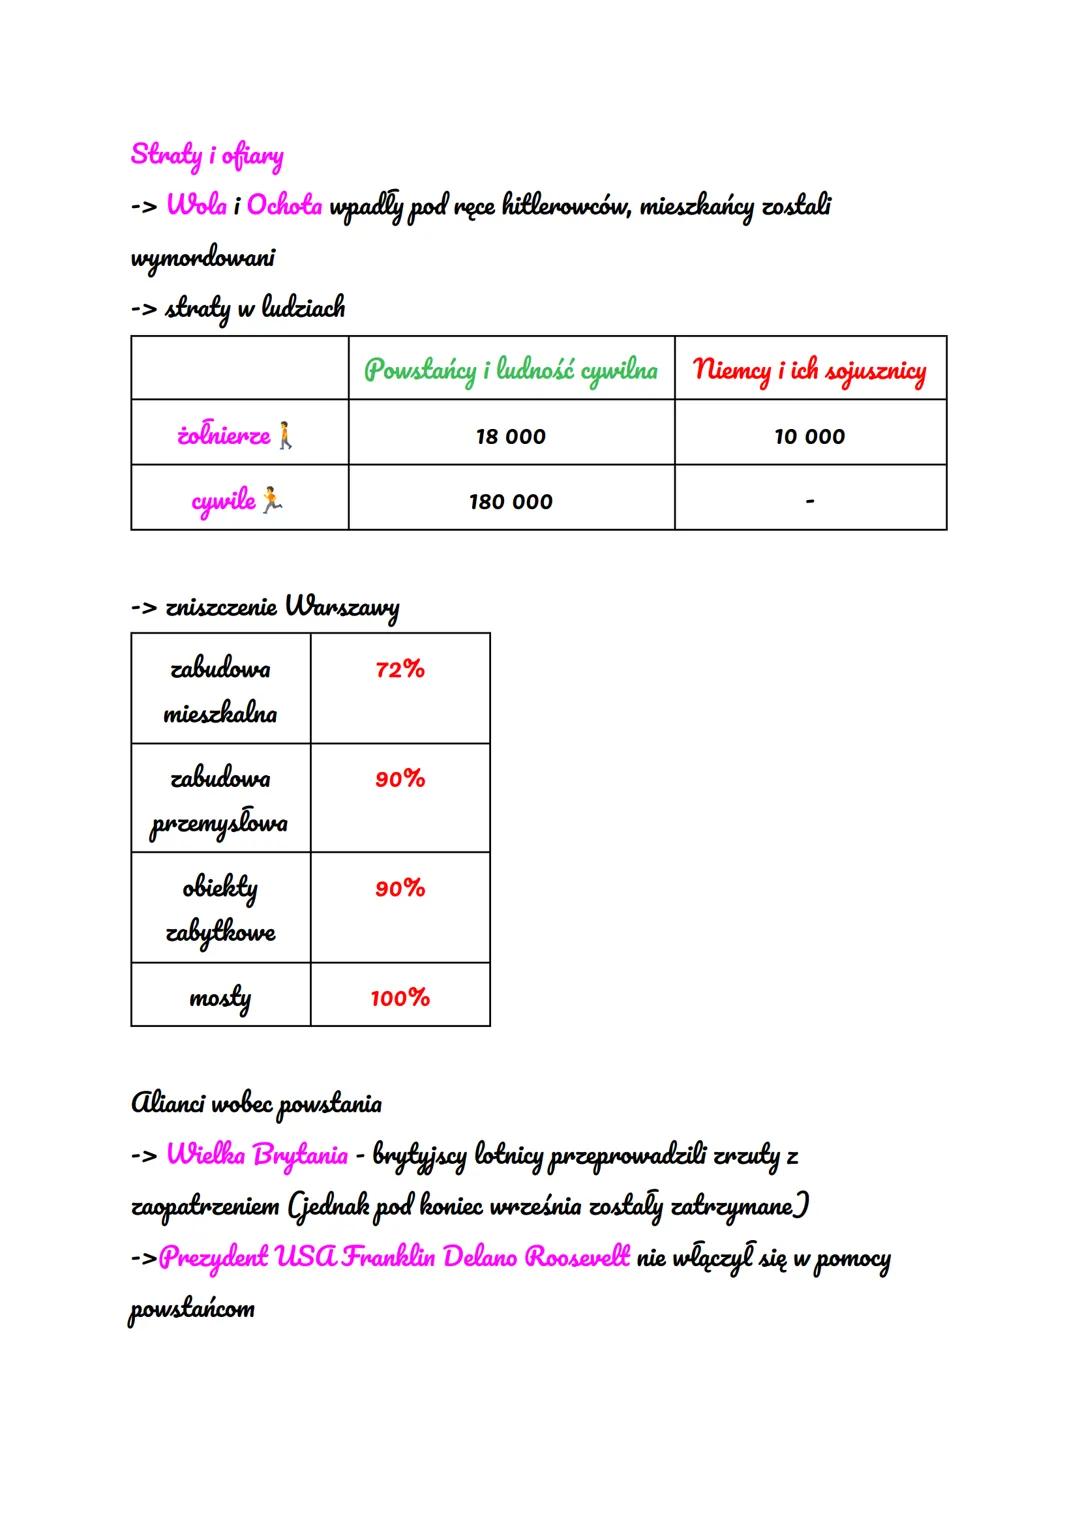 Straty i ofiary
-> Wola i Ochota wpadły pod ręce hitlerowców, mieszkańcy zostali
wymordowani
-> straty w ludziach
Powstańcy i ludność cywilna Niemcy i ich sojusznicy
żołnierze 18 000 10 000
cywile 180 000 -
-> zniszczenie Warszawy
zabudowa 72%
mieszkalna
zabudowa 90%
przemysłowa
obiekty 90%
zabytkowe
mosty 100%
Alianci wobec powstania
-> Wielka Brytania - brytyjscy lotnicy przeprowadzili zrzuty z
zaopatrzeniem (jednak pod koniec września zostały zatrzymane)
->Prezydent USA Franklin Delano Roosevelt nie włączył się w pomocy
powstańcom